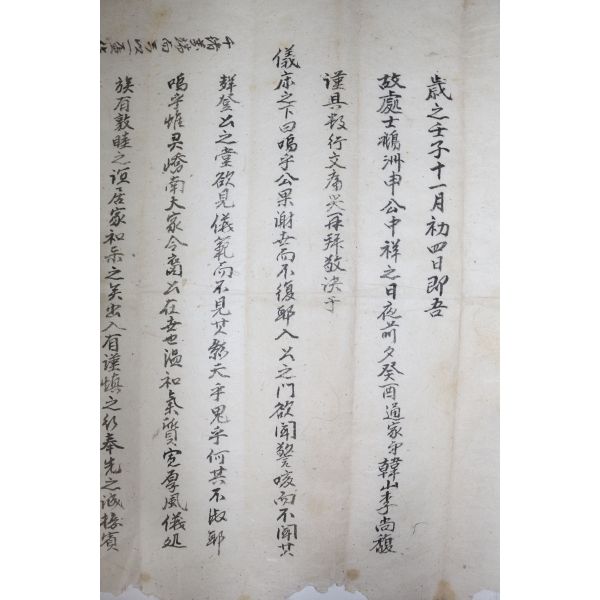 歲之壬子十一月初四日即吾
故處士鵝洲申公中祥之日夜前夕癸酉通家弟韓山李尚馥
謹具數行文痛哭再拜敬決于
儀床之下曰嗚乎公果謝世而不復耶入公之門欲聞警咳而不聞其
聲登公之堂欲見儀範而不見其影天乎鬼乎何其不淑耶
嗚乎惟君嶠南大家令裔公在世也溫和氣質寬厚風儀処
族有敦睦之誼居家和樂之美出入有謹慎之行奉先之誠接賓